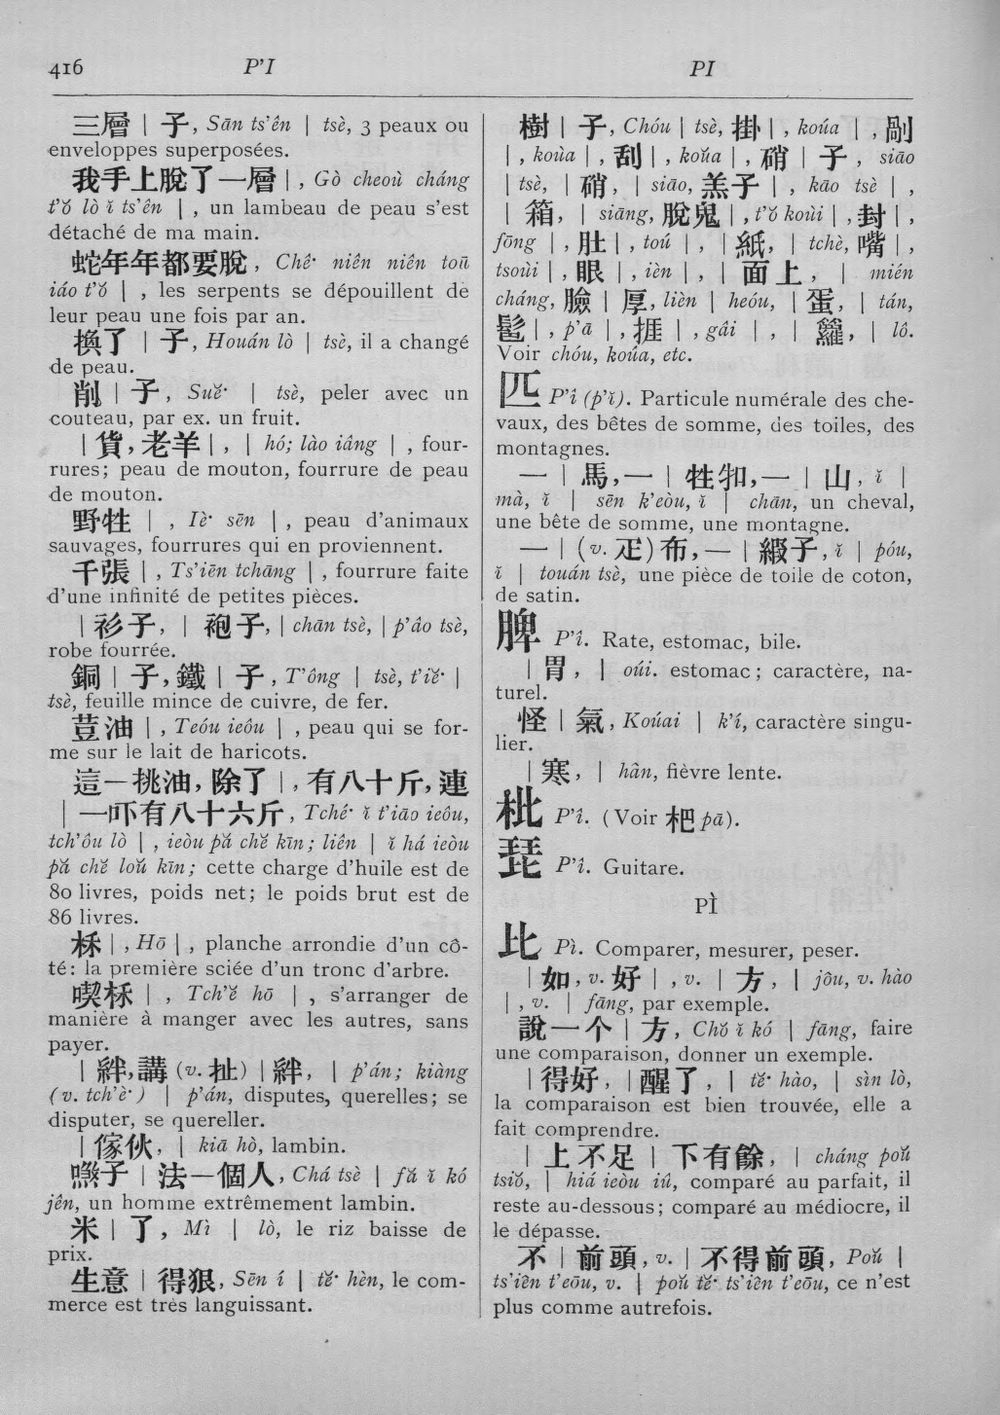 416 P'I PI
三層｜子, Sān ts'ên | tsè, 3 peaux ou
enveloppes superposées.
我手上脫了一層｜, Gò cheoù cháng
t'ŏ lò ĭ ts'ên | , un lambeau de peau s'est
détaché de ma main.
蛇年年都要脫, Chê· niên niên toū
iáo t'ŏ | , les serpents se dépouillent de
leur peau une fois par an.
換了｜子, Houán lò | tsè, il a changé
de peau.
削｜子, Suĕ· | tsè, peler avec un
couteau, par ex. un fruit.
｜貨, 老羊｜, | hó; lào iâng | , four-
rures; peau de mouton, fourrure de peau
de mouton.
野牲｜, Iè· sēn | , peau d'animaux
sauvages, fourrures qui en proviennent.
千張｜, Ts'iēn tchāng | , fourrure faite
d'une infinité de petites pièces.
｜衫子, ｜袍子, | chān tsè, | p'âo tsè,
robe fourrée.
銅｜子, 鐵｜子, T'ông | tsè, t'iĕ· |
tsè, feuille mince de cuivre, de fer.
荳油｜, Teóu ieôu | , peau qui se for-
me sur le lait de haricots.
這一挑油, 除了｜, 有八十斤, 連
｜一吓有八十六斤, Tché· ĭ t'iāo ieôu,
tch'ôu lò | , ieòu pă chĕ kīn; liên | ĭ há ieòu
pă chĕ loŭ kīn; cette charge d'huile est de
80 livres, poids net; le poids brut est de
86 livres.
｜, Hō | , planche arrondie d'un cô-
té: la première sciée d'un tronc d'arbre.
喫｜, Tch'ĕ hō | , s'arranger de
manière à manger avec les autres, sans
payer.
｜絆, 講 (v. 扯) ｜絆, | p'án; kiàng
(v. tch'è·) | p'án, disputes, querelles; se
disputer, se quereller.
｜傢伙, | kiā hò, lambin.
子｜法一個人, Chá tsè | fă ĭ kó
jên, un homme extrêmement lambin.
米｜了, Mì | lò, le riz baisse de
prix.
生意｜得狠, Sēn í | tĕ· hèn, le com-
merce est très languissant.
樹｜子, Chóu | tsè, 掛｜, koúa | , 剮
｜, koùa | , 刮｜, koŭa | , 硝｜子, siāo
| tsè, ｜硝, | siāo, 羔子｜, kāo tsè | ,
｜箱, | siāng, 脫鬼｜, t'ŏ koùi | , 封｜,
fōng | , 肚｜, toú | , ｜紙, | tchè, 嘴｜,
tsoùi | , 眼｜, ièn | , ｜面上, | mién
cháng, 臉｜厚, lièn | heóu, ｜蛋, | tán,
｜, p'ā | , 捱｜, gâi | , ｜籮, | lô.
Voir chóu, koúa, etc.
匹 P'î (p'ĭ). Particule numérale des che-
vaux, des bêtes de somme, des toiles, des
montagnes.
一｜馬, 一｜牲, 一｜山, ĭ |
mà, ĭ | sēn k'eòu, ĭ | chān, un cheval,
une bête de somme, une montagne.
一｜(v. 疋) 布, 一｜緞子, ĭ | póu,
ĭ | touán tsè, une pièce de toile de coton,
de satin.
脾 P'î. Rate, estomac, bile.
｜胃, | oúi. estomac; caractère, na-
turel.
怪｜氣, Koúai | k'í, caractère singu-
lier.
｜寒, | hân, fièvre lente.
枇 P'î. (Voir 杷 pā).
琵 P'î. Guitare.
PÌ
比 Pì. Comparer, mesurer, peser.
｜如, v. 好｜, v. ｜方, | jôu, v. hào
| , v. | fāng, par exemple.
說一个｜方, Chŏ ĭ kó | fāng, faire
une comparaison, donner un exemple.
｜得好, ｜醒了, | tĕ· hào, | sìn lò,
la comparaison est bien trouvée, elle a
fait comprendre.
｜上不足｜下有餘, | cháng poŭ
tsiŏ, | hiá ieòu iû, comparé au parfait, il
reste au-dessous; comparé au médiocre, il
le dépasse.
不｜前頭, v. ｜不得前頭, Poŭ |
ts'iên t'eōu, v. | poŭ tĕ· ts'iên t'eōu, ce n'est
plus comme autrefois.